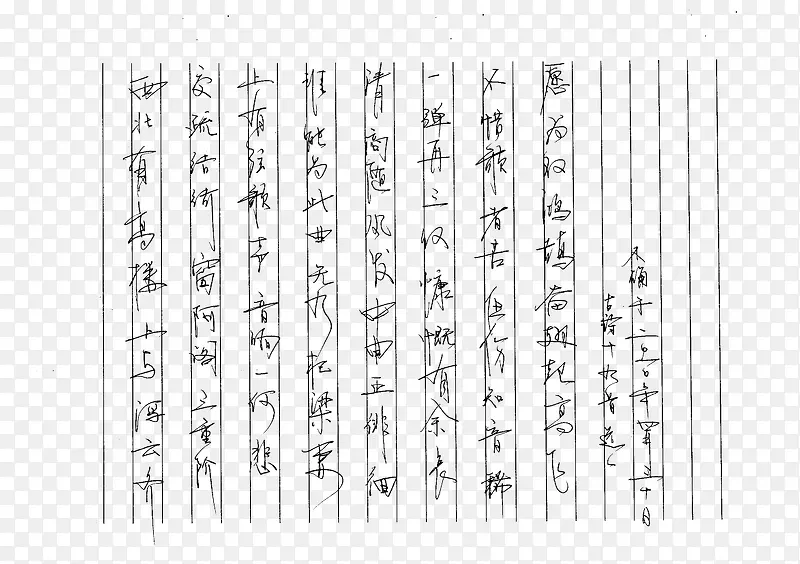 西北有高楼上与浮云齐
交疏结绮窗阿阁三重阶
上有弦歌声音响一何悲
谁能为此曲无乃杞梁妻
清商随风发中曲正徘徊
一弹再三叹慷慨有余哀
不惜歌者苦但伤知音稀
愿为双鸿鹄奋翅起高飞
古诗十九首选
于二年四月三十日